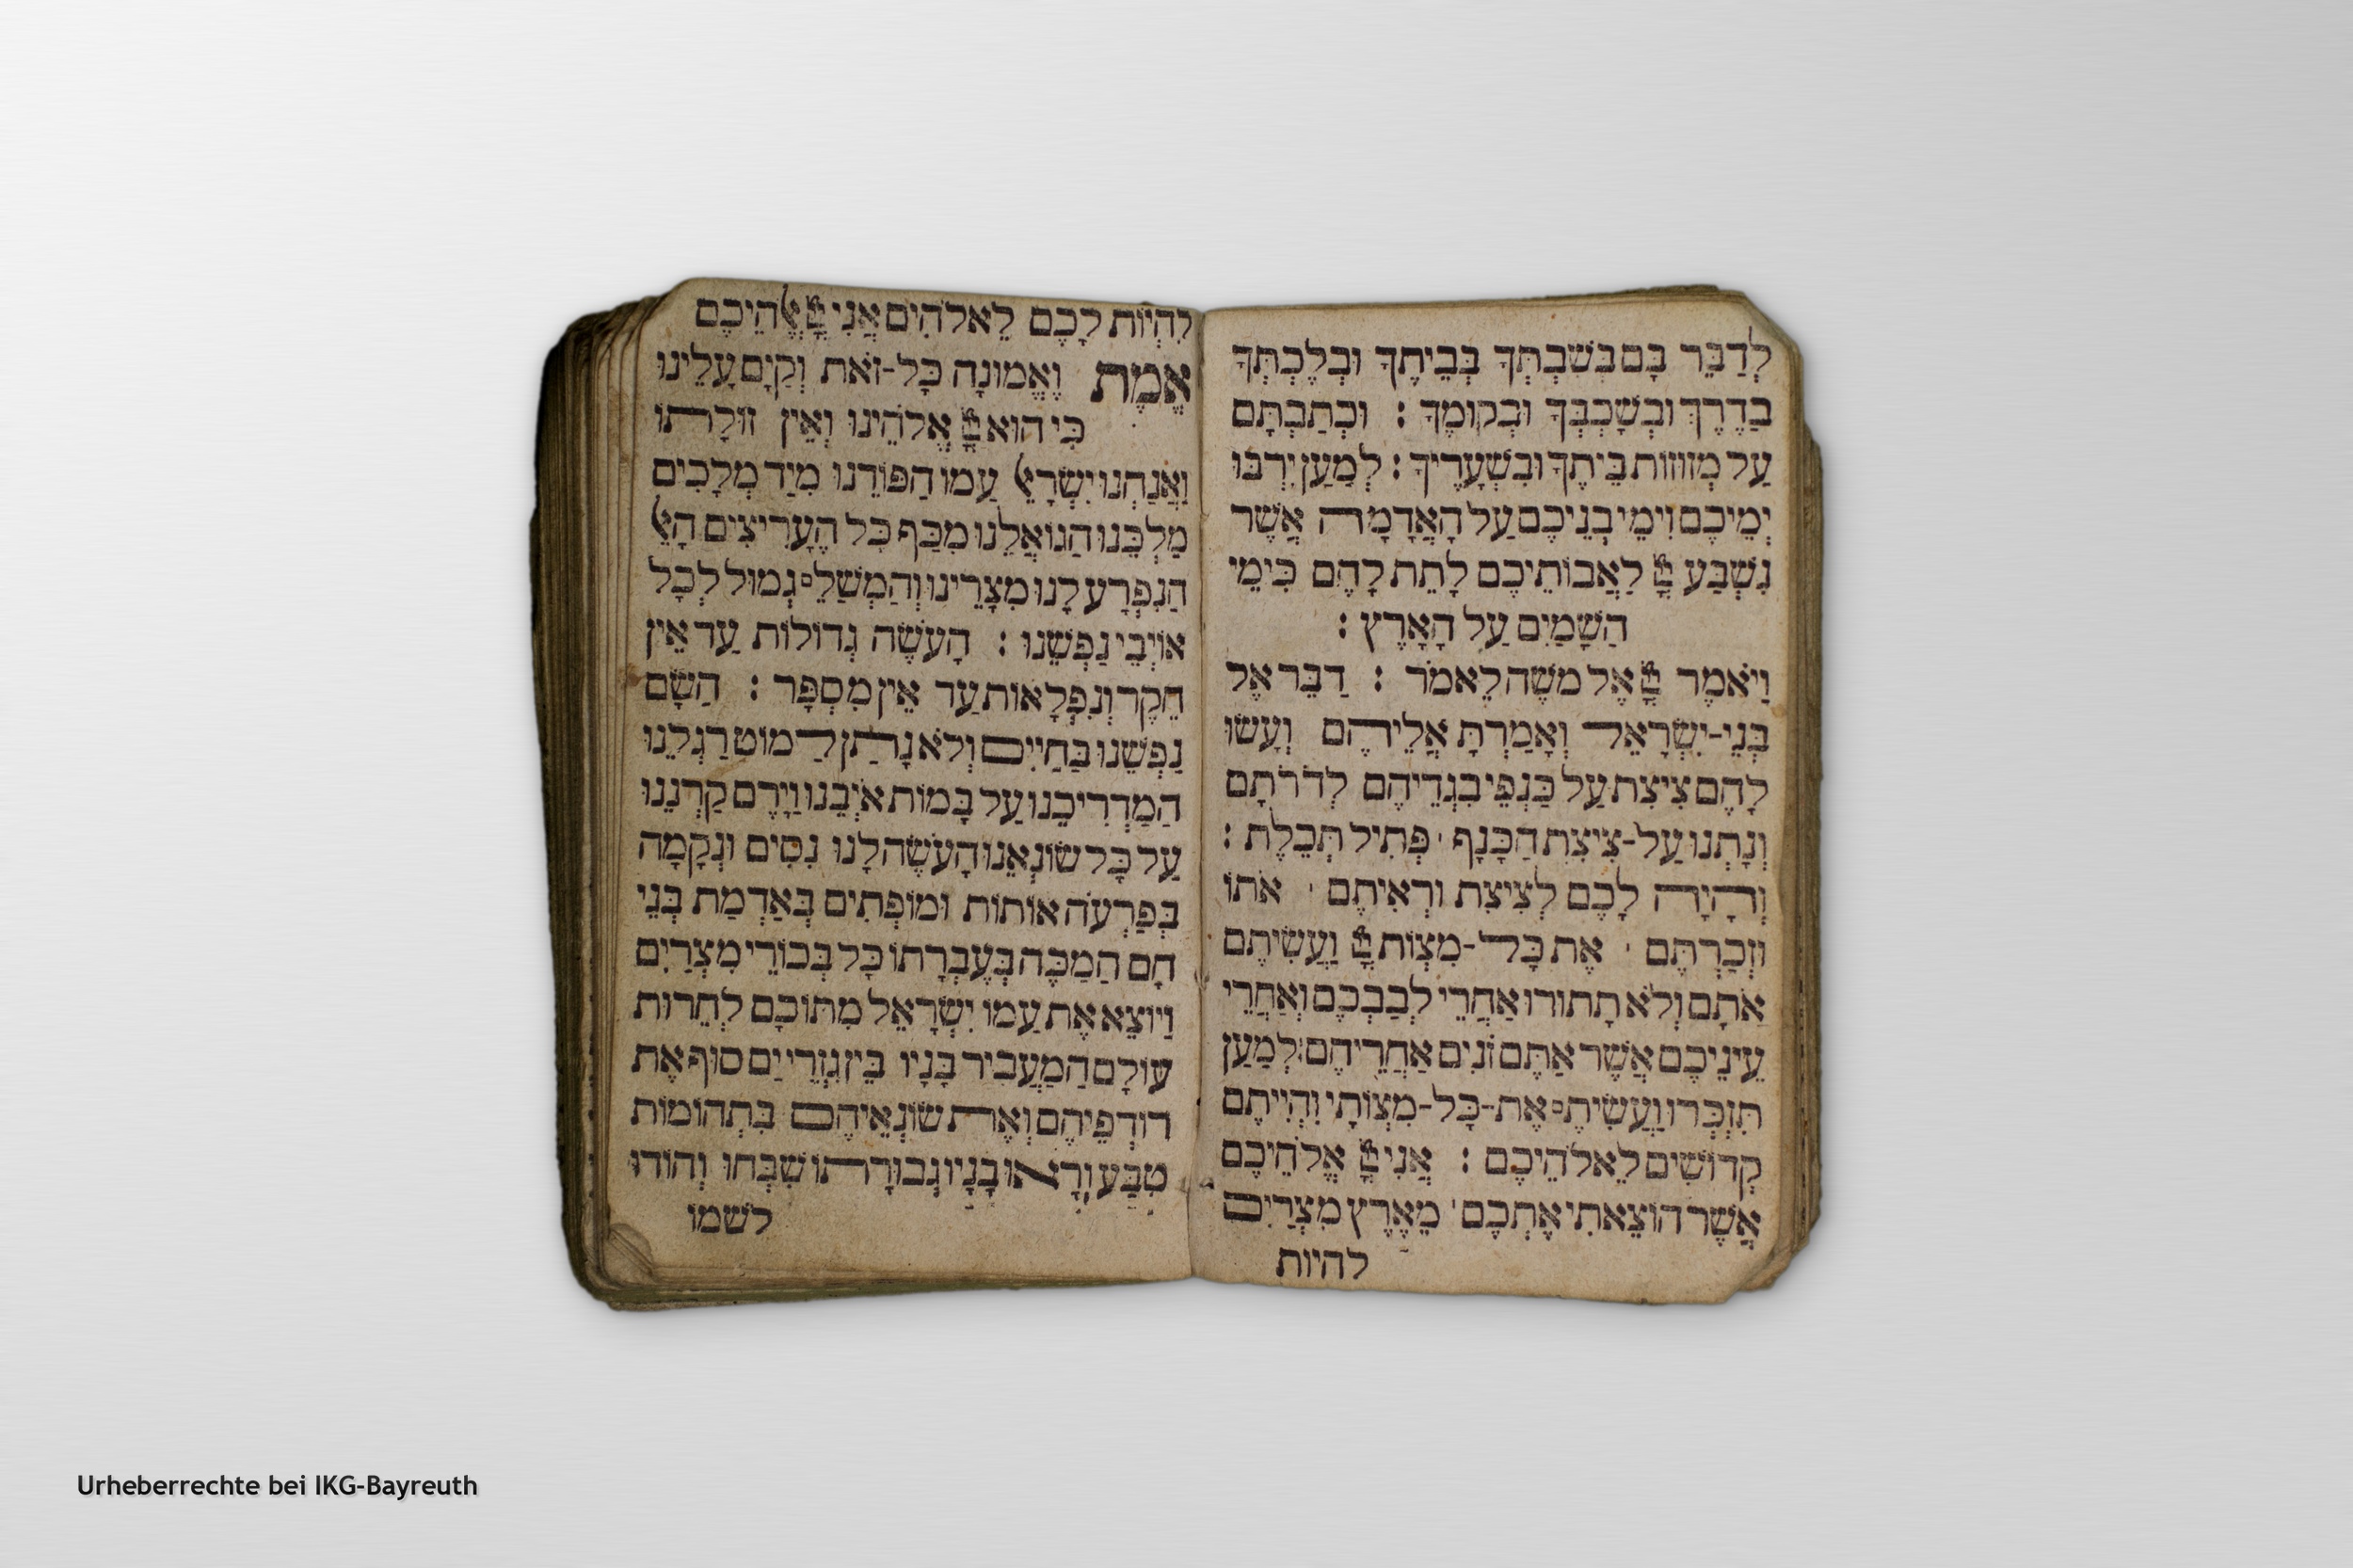 לְדַבֵּר בָּם בְּשִׁבְתְּךָ בְּבֵיתֶךָ וּבְלֶכְתְּךָ
בַדֶרֶךְ וּבְשָׁכְבְּךָ וּבְקוּמֶךָ : וּכְתַבְתָּם
עַל מְזוּזוֹת בֵּיתֶךָ וּבִשְׁעָרֶיךָ : לְמַעַן יִרְבּוּ
יְמֵיכֶם וִימֵי בְנֵיכֶם עַל הָאֲדָמָה אֲשֶׁר
נִשְׁבַּע לַאֲבוֹתֵיכֶם לָתֵת לָהֶם כִּימֵי
הַשָׁמַיִם עַל הָאָרֶץ :
וַיֹאמֶר אֶל מֹשֶׁה לֵאמֹר : דַבֵּר אֶל
בְּנֵי-יִשְׂרָאֵל וְאָמַרְתָּ אֲלֵיהֶם וְעָשׂוּ
לָהֶם צִיצִת עַל כַּנְפֵי בִגְדֵיהֶם לְדֹרֹתָם
וְנָתְנוּ עַל-צִיצִת הַכָּנָף ׳ פְּתִיל תְּכֵלֶת :
וְהָיָה לָכֶם לְצִיצִת וּרְאִיתֶם ׳ אֹתוֹ
וּזְכַרְתֶּם ׳ אֶת כָּל-מִצְוֹת וַעֲשִׂיתֶם
אֹתָם וְלֹא תָתוּרוּ אַחֲרֵי לְבַבְכֶם וְאַחֲרֵי
עֵינֵיכֶם אֲשֶׁר אַתֶּם זוֹנִים אַחֲרֵיהֶם : לְמַעַן
תִּזְכְּרוּ וַעֲשִׂיתֶם אֶת-כָּל-מִצְוֹתָי וִהְיִיתֶם
קְדוֹשִׁים לֵאלֹהֵיכֶם : אֲנִי אֱלֹהֵיכֶם
אֲשֶׁר הוֹצֵאתִי אֶתְכֶם ׳ מֵאֶרֶץ מִצְרַיִם
להיות
לִהְיוֹת לָכֶם לֵאלֹהִים אֲנִי אֱלֹהֵיכֶם
אֱמֶת וֶאֱמוּנָה כָּל-זֹאת וְקַיָם עָלֵינוּ
כִּי הוּא אֱלֹהֵינוּ וְאֵין זוּלָתוֹ
וַאֲנַחְנוּ יִשְׂרָאֵל עַמוֹ הַפּוֹדֵנוּ מִיַד מְלָכִים
מַלְכֵּנוּ הַגוֹאֲלֵנוּ מִכַּף כָּל הֶעָרִיצִים הָאֵל
הַנִפְרָע לָנוּ מִצָרֵינוּ וְהַמְשַׁלֵם גְמוּל לְכָל
אוֹיְבֵי נַפְשֵׁנוּ : הָעֹשֶׂה גְדוֹלוֹת עַד אֵין
חֵקֶר וְנִפְלָאוֹת עַד אֵין מִסְפָּר : הַשָׂם
נַפְשֵׁנוּ בַּחַיִים וְלֹא נָתַן לַמוֹט רַגְלֵנוּ
הַמַדְרִיכֵנוּ עַל בָּמוֹת אֹיְבֵנוּ וַיָרֶם קַרְנֵנוּ
עַל כָּל שׂוֹנְאֵנוּ הָעֹשֶׂה לָנוּ נִסִים וּנְקָמָה
בְּפַרְעֹה אוֹתוֹת וּמוֹפְתִים בְּאַדְמַת בְּנֵי
חָם הַמַכֶּה בְּעֶבְרָתוֹ כָּל בְּכוֹרֵי מִצְרַיִם
וַיוֹצֵא אֶת עַמוֹ יִשְׂרָאֵל מִתּוֹכָם לְחֵרוּת
עוֹלָם הַמַעֲבִיר בָּנָיו בֵּין גִזְרֵי יַם סוּף אֶת
רוֹדְפֵיהֶם וְאֶת שׂוֹנְאֵיהֶם בִּתְהוֹמוֹת
טִבַּע וְרָאוּ בָנָיו גְבוּרָתוֹ שִׁבְּחוּ וְהוֹדוּ
לשמו
Urheberrechte bei IKG-Bayreuth